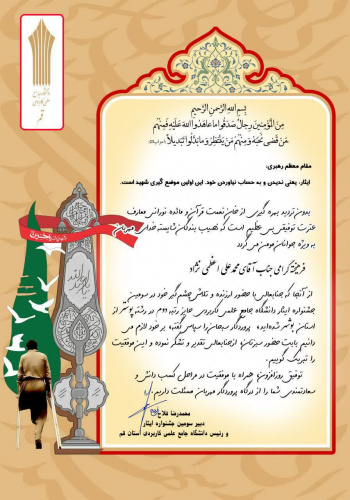 دانشگاه جامع
علمی کاربردی
قم
بِسمِ اللهِ الرَّحمنِ الرَّحیمِ
مِنَ المُؤمِنینَ رِجالٌ صَدَقُوا ما عاهَدُوا اللهَ عَلَیهِ فَمِنهُم
مَن قَضی نَحبَهُ وَ مِنهُم مَن یَنتَظِرُ وَ ما بَدَّلُوا تَبدیلاً
مقام معظم رهبری:
ایثار، یعنی ندیدن و به حساب نیاوردن خود. این اولین موضع گیری شهید است.
بدون تردید بهره گیری از خوان نعمت قرآن و مائده نورانی معارف
عترت توفیقی بس عظیم است که نصیب بندگان شایسته خدای مهربان
به ویژه جوانان مومن می گردد
فرهیخته گرامی جناب آقای محمد علی اعظمی نژاد
از آنجا که جنابعالی با حضور ارزنده و تلاش چشم گیر خود در سومین
جشنواره ایثار دانشگاه جامع علمی کاربردی حایز رتبه دوم در رشته پوستر از
استان بوشهر شده اید، پروردگار سبحان را سپاس گفته بر خود لازم می
دانیم بابت حضور سبزتان، از جنابعالی تقدیر و تشکر نموده و این موفقیت
را تبریک گوییم.
توفیق روزافزون، همراه با موفقیت در مراحل کسب دانش و
سعادتمندی شما را از درگاه پروردگار مهربان مسئلت داریم.
محمدرضا فلاح
دبیر سومین جشنواره ایثار
و رئیس دانشگاه جامع علمی کاربردی استان قم